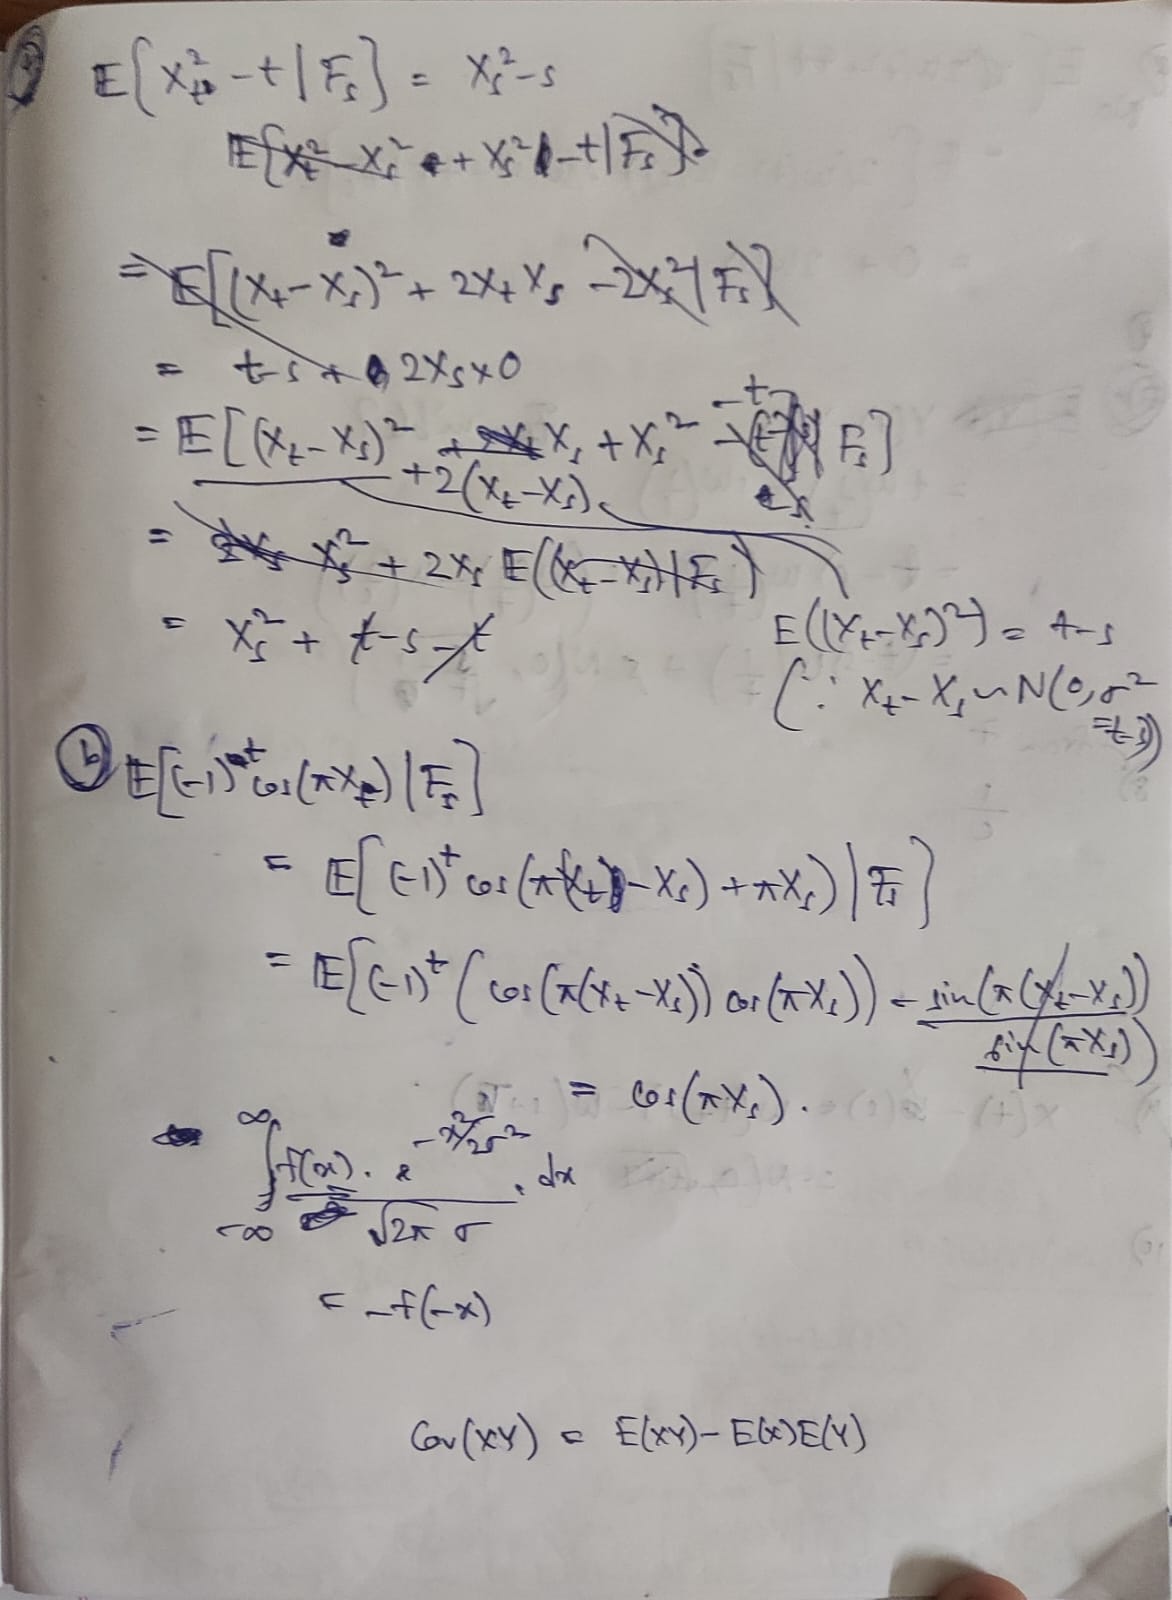 E[X_t^2 - t | F_s] = X_s^2 - s
E[X_t^2 - X_s^2 + X_s^2 - t | F_s]
= E[(X_t - X_s)^2 + 2X_t X_s - 2X_s^2 | F_s]
= t-s + 2X_s × 0
= E[(X_t - X_s)^2 X_s + X_s^2 - t | F_s]
+2(X_t - X_s)
= X_s^2 + 2X_s E((X_t - X_s) | F_s)
= X_s^2 + t - s - t
E((X_t - X_s)^2) = t-s
(∵ X_t - X_s ~ N(0, σ^2
= t-s))
(b) E[(-1)^t cos(πX_t) | F_s]
= E[(-1)^t cos(π(X_t - X_s) + πX_s) | F_s]
= E[(-1)^t (cos(π(X_t - X_s)) cos(πX_s)) - sin(π(X_t - X_s))
sin(πX_s))
= cos(πX_s).
∫_{-∞}^{∞} f(x) . e^{-x^2/2σ^2} / √2π σ . dx
= -f(-x)
Cov(XY) = E(XY) - E(X)E(Y)